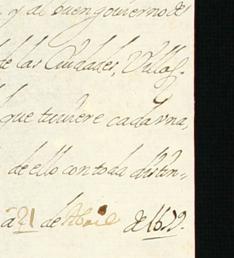 y al buen gouierno de
de las Ciudades, Villas,
que tuuiere cada vna,
de ello con toda distin-
a 21 de Abril de 1629.